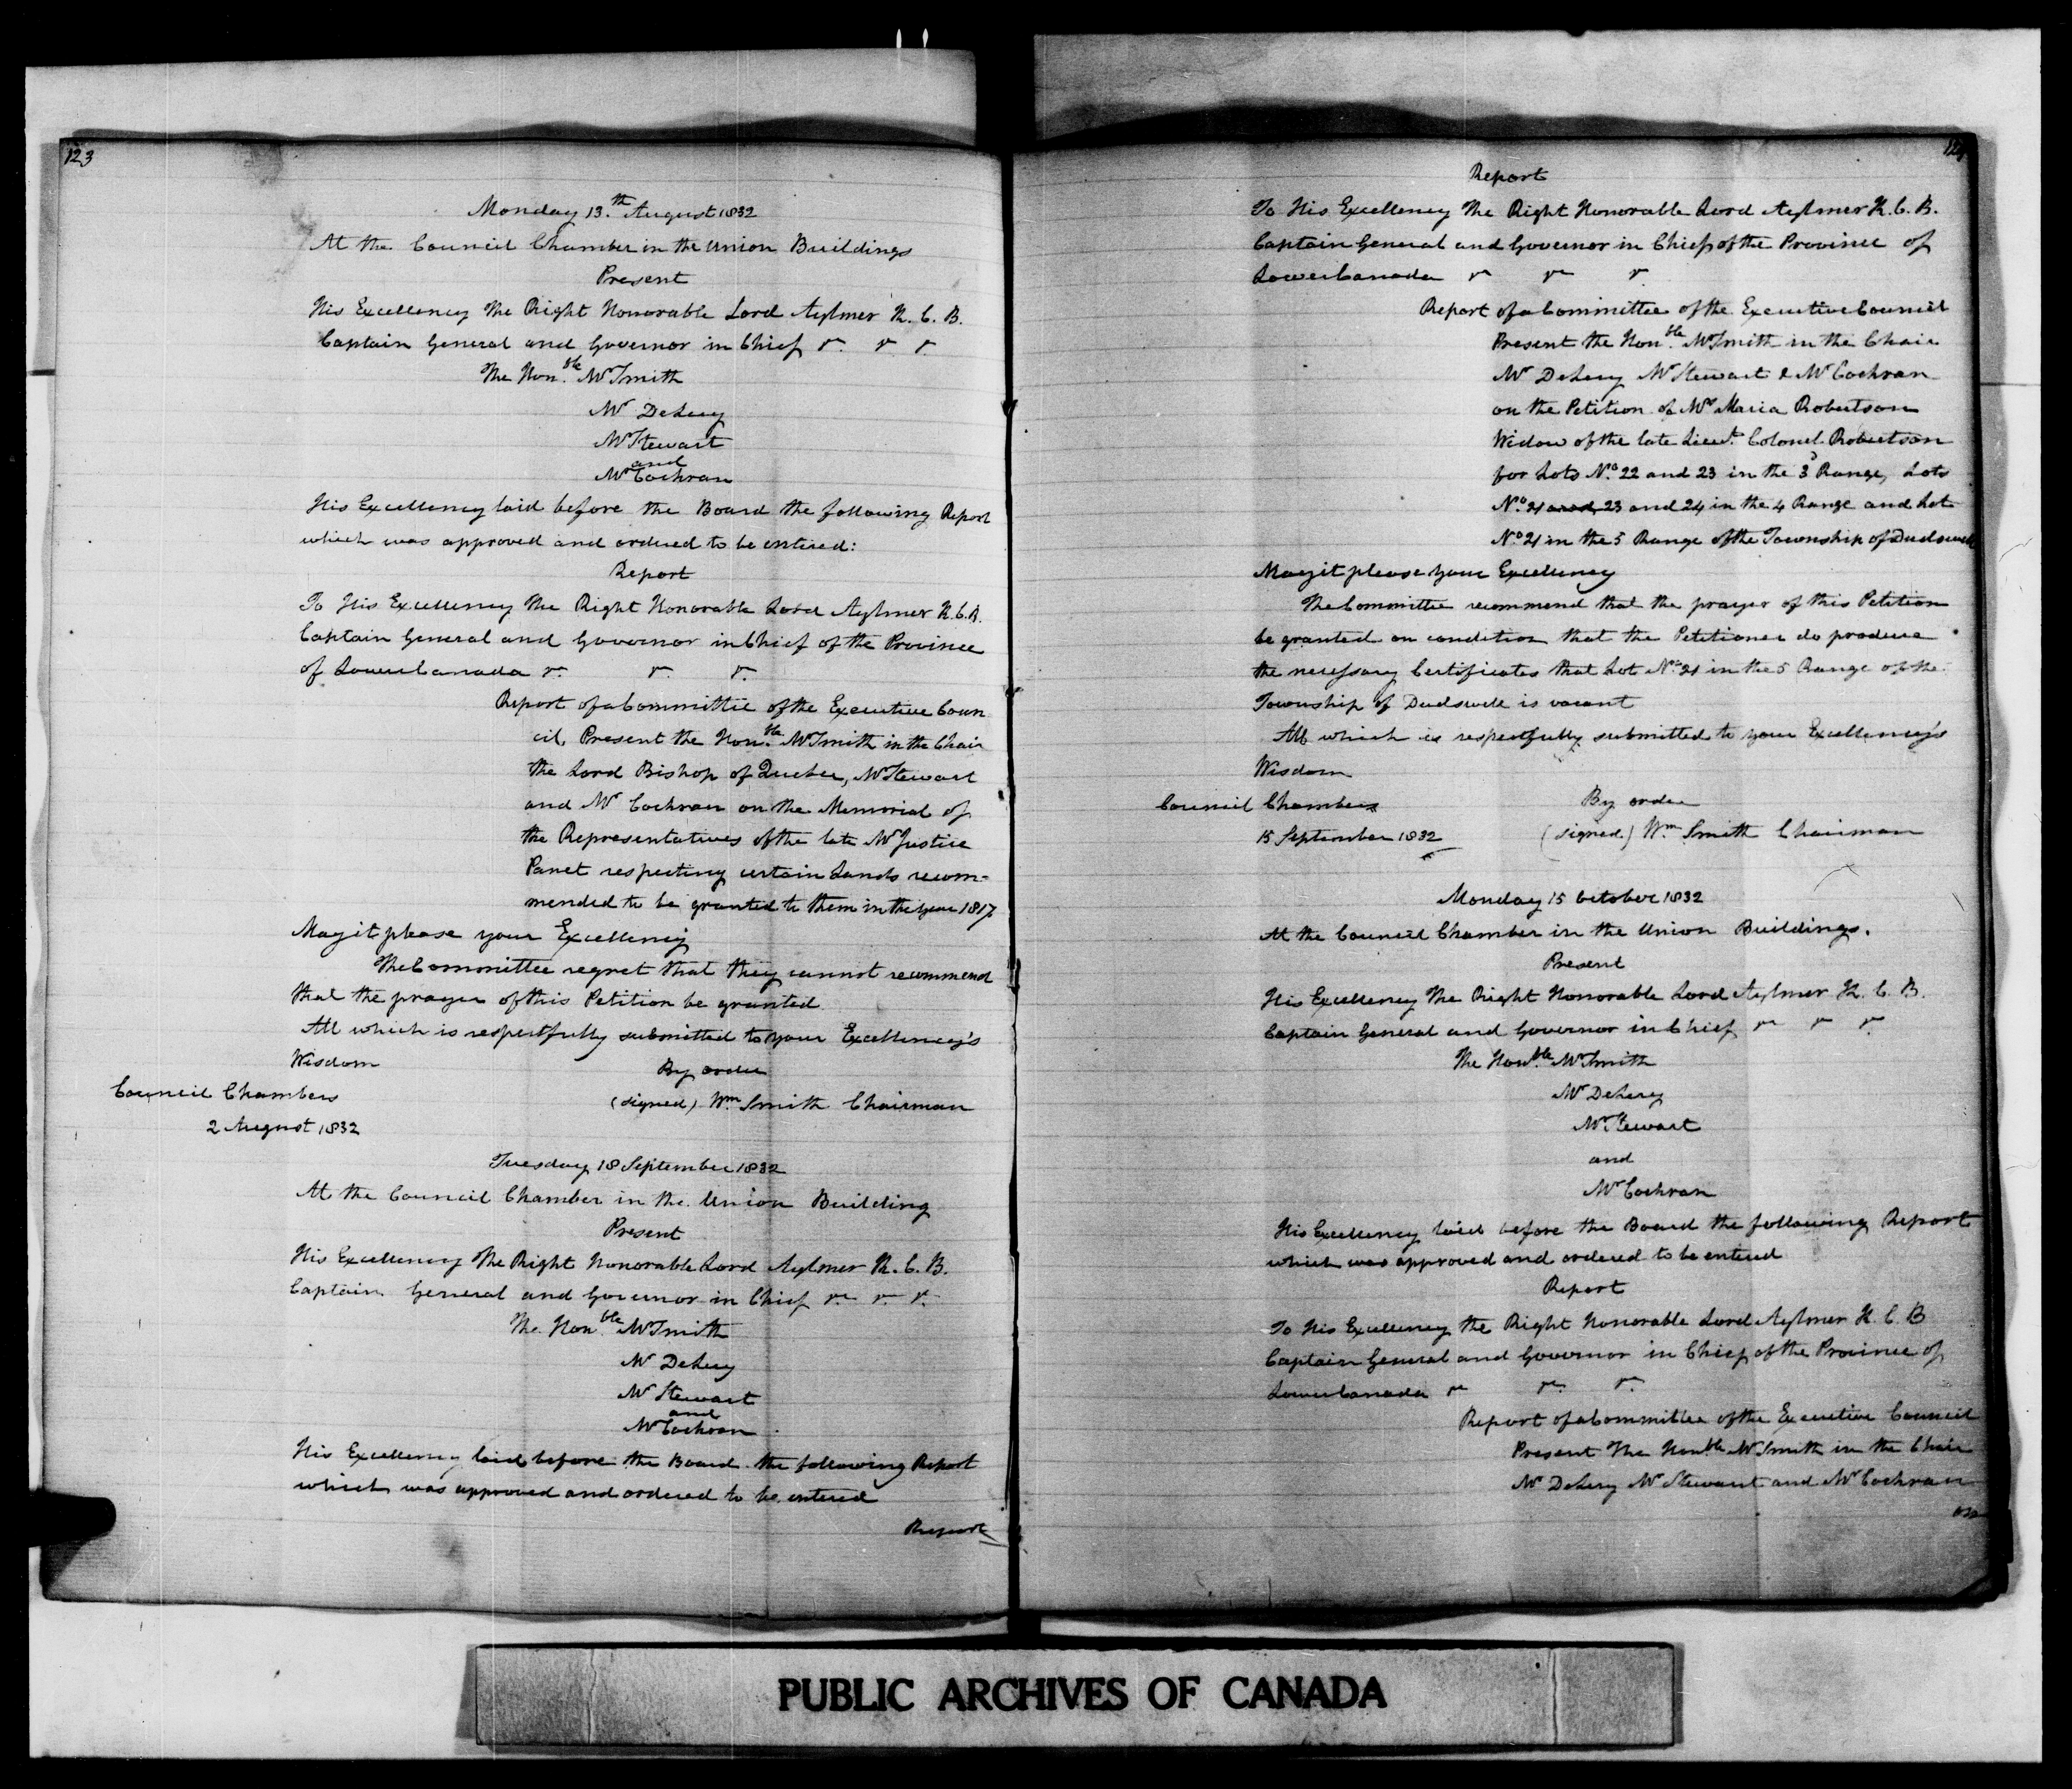 123
Monday 13.th August 1832
At the Council Chamber in the Union Buildings
Present
His Excellency The Right Honorable Lord Aylmer K. C. B.
Captain General and Governor in Chief &c. &c &c.
The Hon.ble Mr Smith
Mr DeLery
Mr Stewart
and
Mr Cochran
His Excellency laid before the Board the following Report
which was approved and ordered to be entered:
Report
To His Excellency The Right Honorable Lord Aylmer K.C.B.
Captain General and Governor in Chief of the Province
of Lower Canada &c. &c. &c.
Report of a Committee of the Executive Coun
cil, Present the Hon.ble Mr Smith in the Chair
the Lord Bishop of Quebec, Mr Stewart
and Mr Cochran on the Memorial of
the Representatives of the late Mr Justice
Panet respecting certain Lands recom-
mended to be granted to them in the year 1817
May it please your Excellency
The Committee regret that they cannot recommend
that the prayer of this Petition be granted
All which is respectfully submitted to your Excellency's
Wisdom
By order
Council Chambers
(signed) Wm. Smith Chairman
2 August 1832
Tuesday 18 September 1832
At the Council Chamber in the Union Building
Present
His Excellency The Right Honorable Lord Aylmer K. C. B.
Captain General and Governor in Chief &c. &c. &c.
The Hon.ble Mr Smith
Mr DeLery
Mr Stewart
and
Mr Cochran
His Excellency laid before the Board the following Report
which was approved and ordered to be entered
Report
Report
To His Excellency The Right Honorable Lord Aylmer K. C. B.
Captain General and Governor in Chief of the Province of
Lower Canada &c &c &c
Report of a Committee of the Executive Council
Present the Hon.ble Mr Smith in the Chair
Mr DeLery Mr Stewart & Mr Cochran
on the Petition of Mrs Maria Robertson
Widow of the late Lieut. Colonel Robertson
for Lots No. 22 and 23 in the 3d Range, Lots
No. 21 and 23 and 24 in the 4 Range and Lot
No. 21 in the 5 Range of the Township of Dudswell
May it please your Excellency
The Committee recommend that the prayer of this Petition
be granted on condition that the Petitioner do produce
the necessary Certificates that Lot No. 21 in the 5 Range of the
Township of Dudswell is vacant
All which is respectfully submitted to your Excellency's
Wisdom
Council Chambers
By order
15 September 1832
(signed) Wm. Smith Chairman
Monday 15 October 1832
At the Council Chamber in the Union Buildings.
Present
His Excellency The Right Honorable Lord Aylmer K. C. B.
Captain General and Governor in Chief &c &c &c.
The Hon.ble Mr Smith
Mr DeLery
Mr Stewart
and
Mr Cochran
His Excellency laid before the Board the following Report
which was approved and ordered to be entered
Report
To His Excellency the Right Honorable Lord Aylmer K. C. B
Captain General and Governor in Chief of the Province of
Lower Canada &c &c. &c.
Report of a Committee of the Executive Council
Present The Honble Mr Smith in the Chair
Mr DeLery Mr Stewart and Mr Cochran
on
PUBLIC ARCHIVES OF CANADA